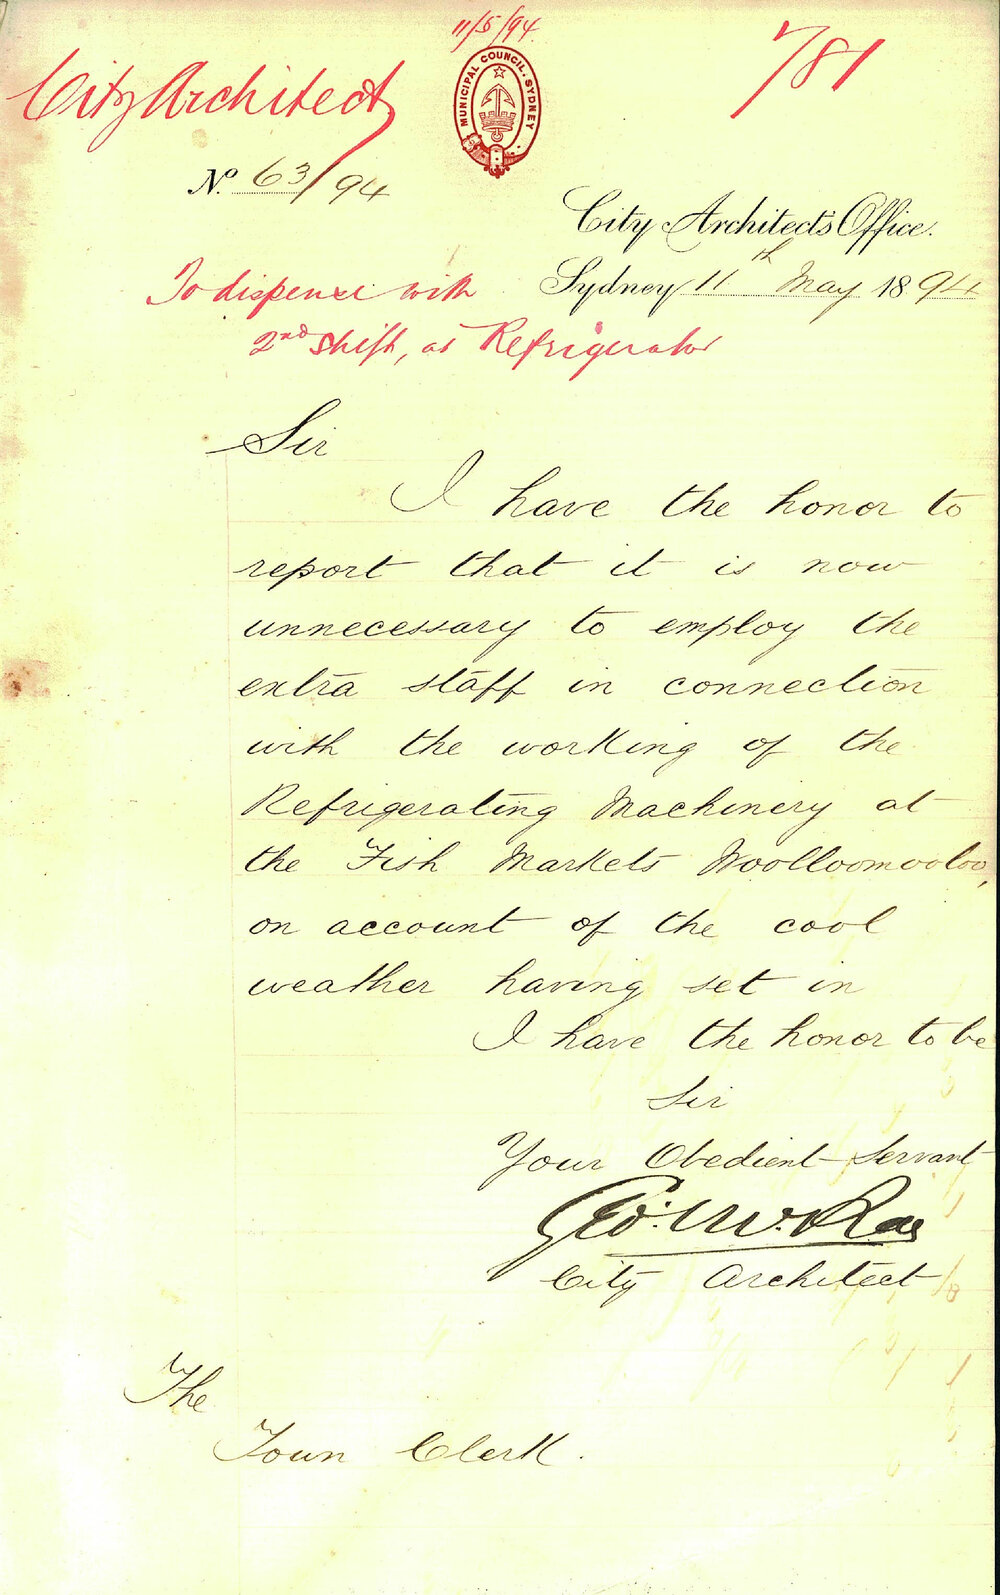 11/5/94.
City Architect
781
MUNICIPAL COUNCIL. SYDNEY
No. 63/94
City Architect's Office.
Sydney 11th May 1894
To dispense with
2nd shift, at Refrigerator
Sir
I have the honor to
report that it is now
unnecessary to employ the
extra staff in connection
with the working of the
Refrigerating Machinery at
the Fish Markets Woolloomooloo,
on account of the cool
weather having set in
I have the honor to be
Sir
Your Obedient Servant
Geo: McRae
City Architect
The
Town Clerk.